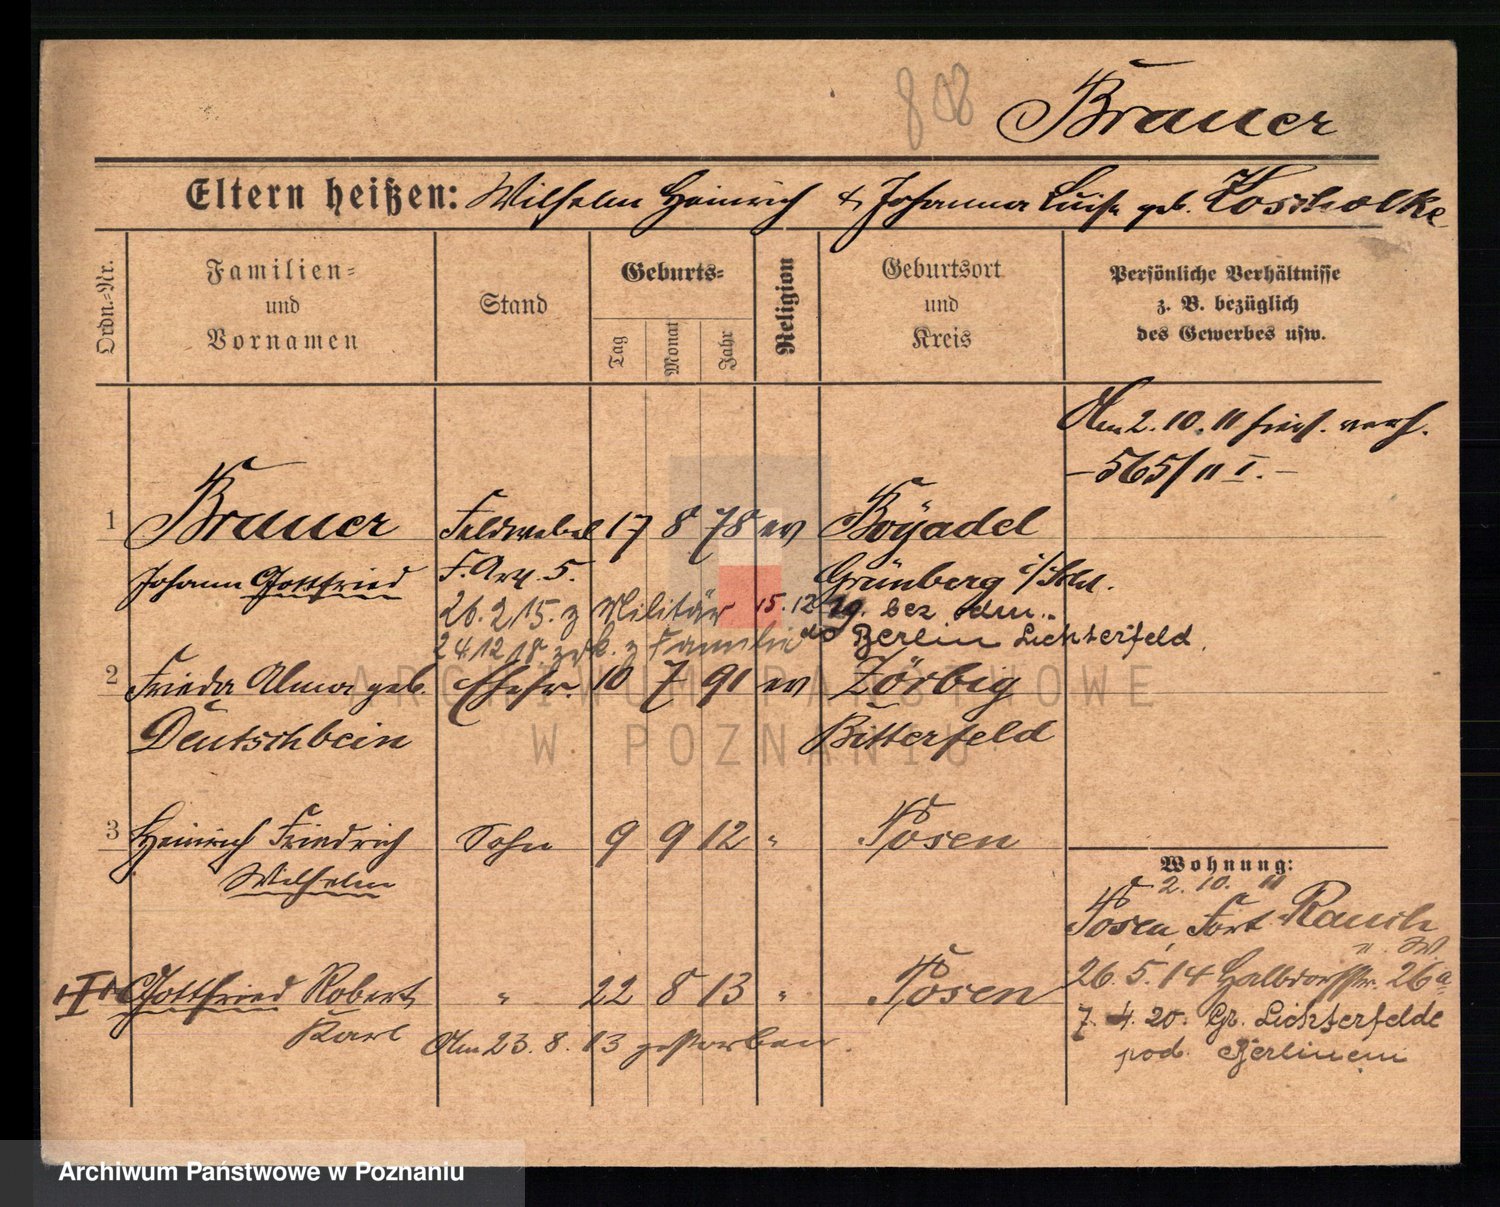 808
Brauer
Eltern heißen: Wilhelm Heinrich & Johanna Luise geb. Koscholke
Ordn.=Nr.
Familien=
und
Vornamen
Stand
Geburts=
Tag
Monat
Jahr
Religion
Geburtsort
und
Kreis
Persönliche Verhältnisse
z. B. bezüglich
des Gewerbes usw.
Am 2. 10. 11 hies. verh.
— 565/11 I. —
1 Brauer Feldwebel 17 8 78 ev Boyadel
Johann Gottfried F. Art. 5. Grünberg i/Schl.
26. 2 15. z Militär 15. 12 19. bez odm..
24 12 18 zrk. z Familie do Berlin Lichterfeld.
2 Frieda Alma geb. Ehefr. 10 7 91 ev Zörbig
Deutschbein Bitterfeld
3 Heinrich Friedrich Sohn 9 9 12 " Posen
Wilhelm
Gottfried Robert " 22 8 13 " Posen
Karl Am 23. 8. 13 gestorben.
Wohnung:
2. 10. 11
Posen, Fort Rauch
26. 5. 14 Halbdorfstr. 26a
7. 4. 20. Gr. Lichterfelde
pod. Berlinem
ARCHIWUM PAŃSTWOWE
W POZNANIU
Archiwum Państwowe w Poznaniu